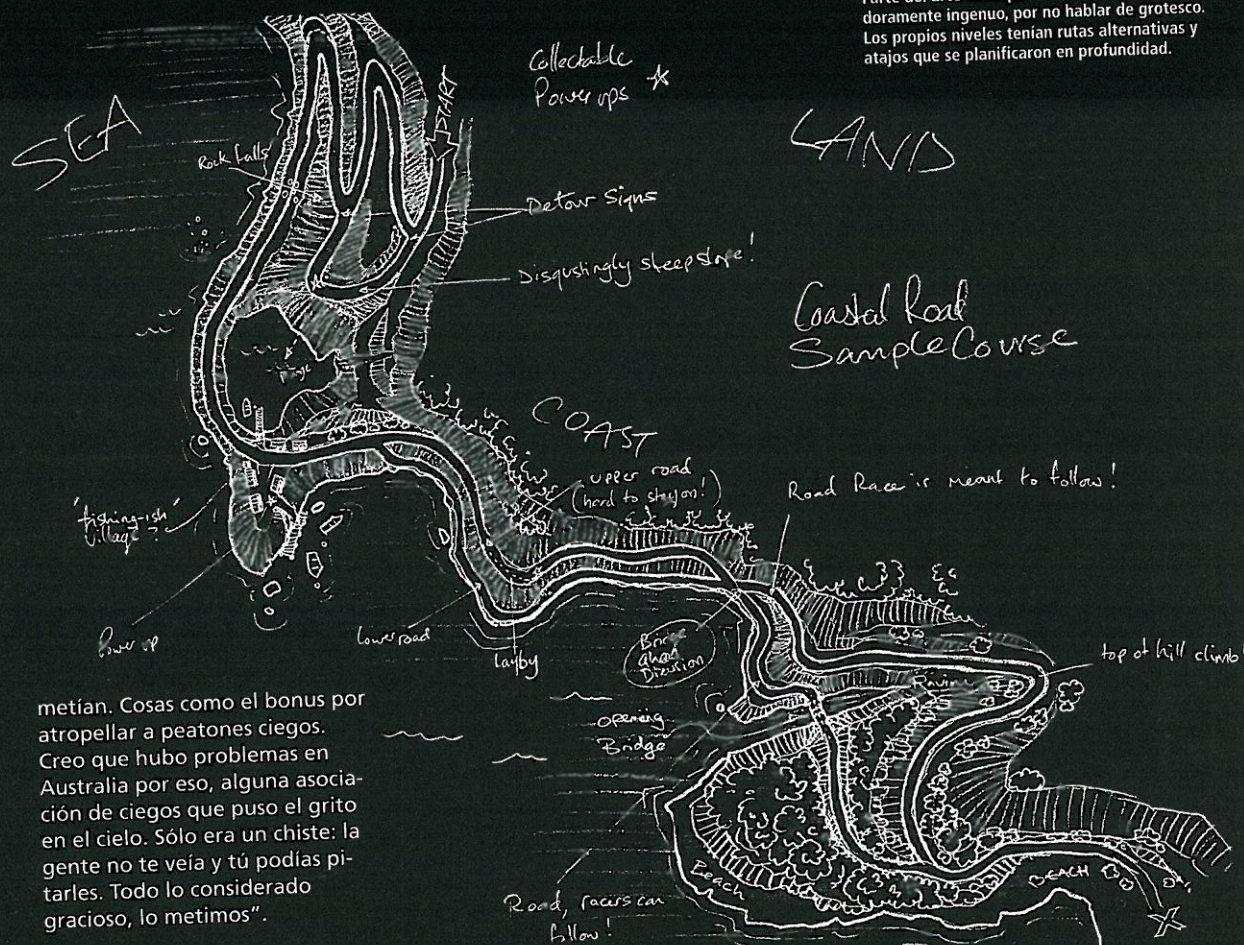 doramente ingenuo, por no hablar de grotesco.
Los propios niveles tenían rutas alternativas y
atajos que se planificaron en profundidad.
SEA
Collectable
Power ups
START
LAND
Rock falls
Detour Signs
Disgustingly steep slope!
Coastal Road
Sample Course
COAST
upper road
(hard to stay on!)
Road Race is meant to follow!
'fishing-ish'
village?
Power up
Lower road
Layby
Bridge
ahead
top of hill climb
opening
Bridge
Beach
BEACH
Road, racers can
follow!
X
metían. Cosas como el bonus por
atropellar a peatones ciegos.
Creo que hubo problemas en
Australia por eso, alguna asocia-
ción de ciegos que puso el grito
en el cielo. Sólo era un chiste: la
gente no te veía y tú podías pi-
tarles. Todo lo considerado
gracioso, lo metimos”.